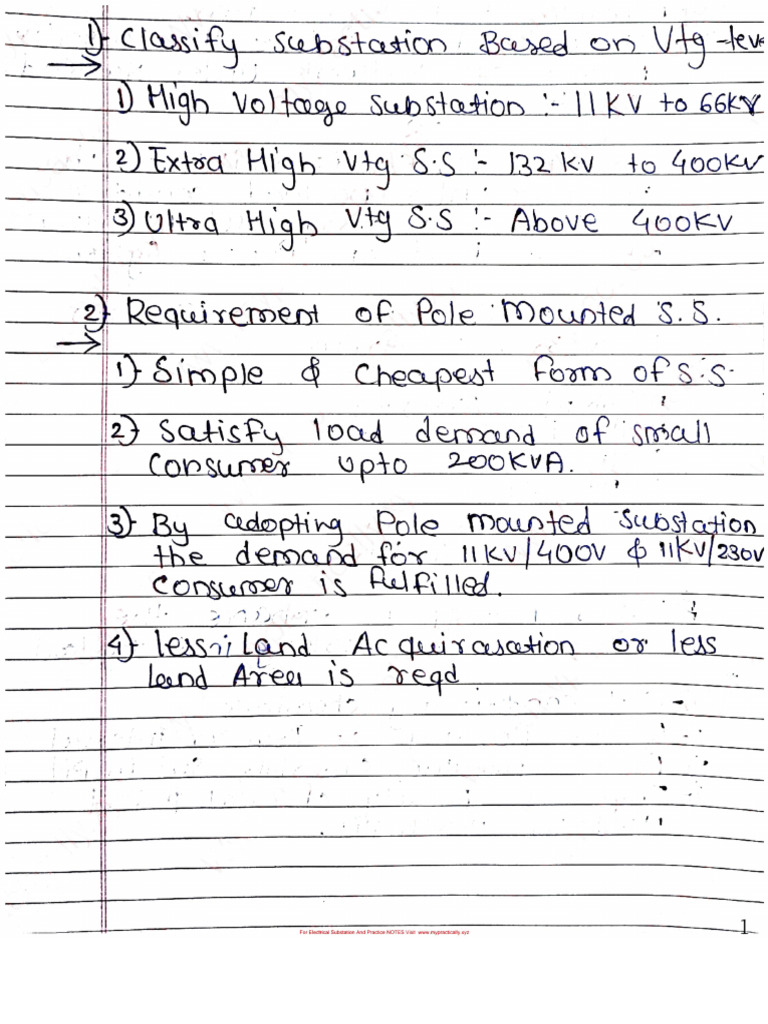 1) Classify substation Based on Vtg-leve
1) High voltage substation :- 11KV to 66KV
2) Extra High Vtg S.S :- 132 KV to 400KV
3) Ultra High Vtg S.S :- Above 400KV
2) Requirement of Pole Mounted S.S.
1) Simple & Cheapest form of S.S.
2) Satisfy load demand of small
Consumer upto 200KVA.
3) By adopting Pole mounted substation
the demand for 11KV/400V & 11KV/230V
Consumer is fulfilled.
4) less land Acquirasation or less
land Area is reqd
For Electrical Substance And Practice NOTES Visit: www.mypractically.xyz
1